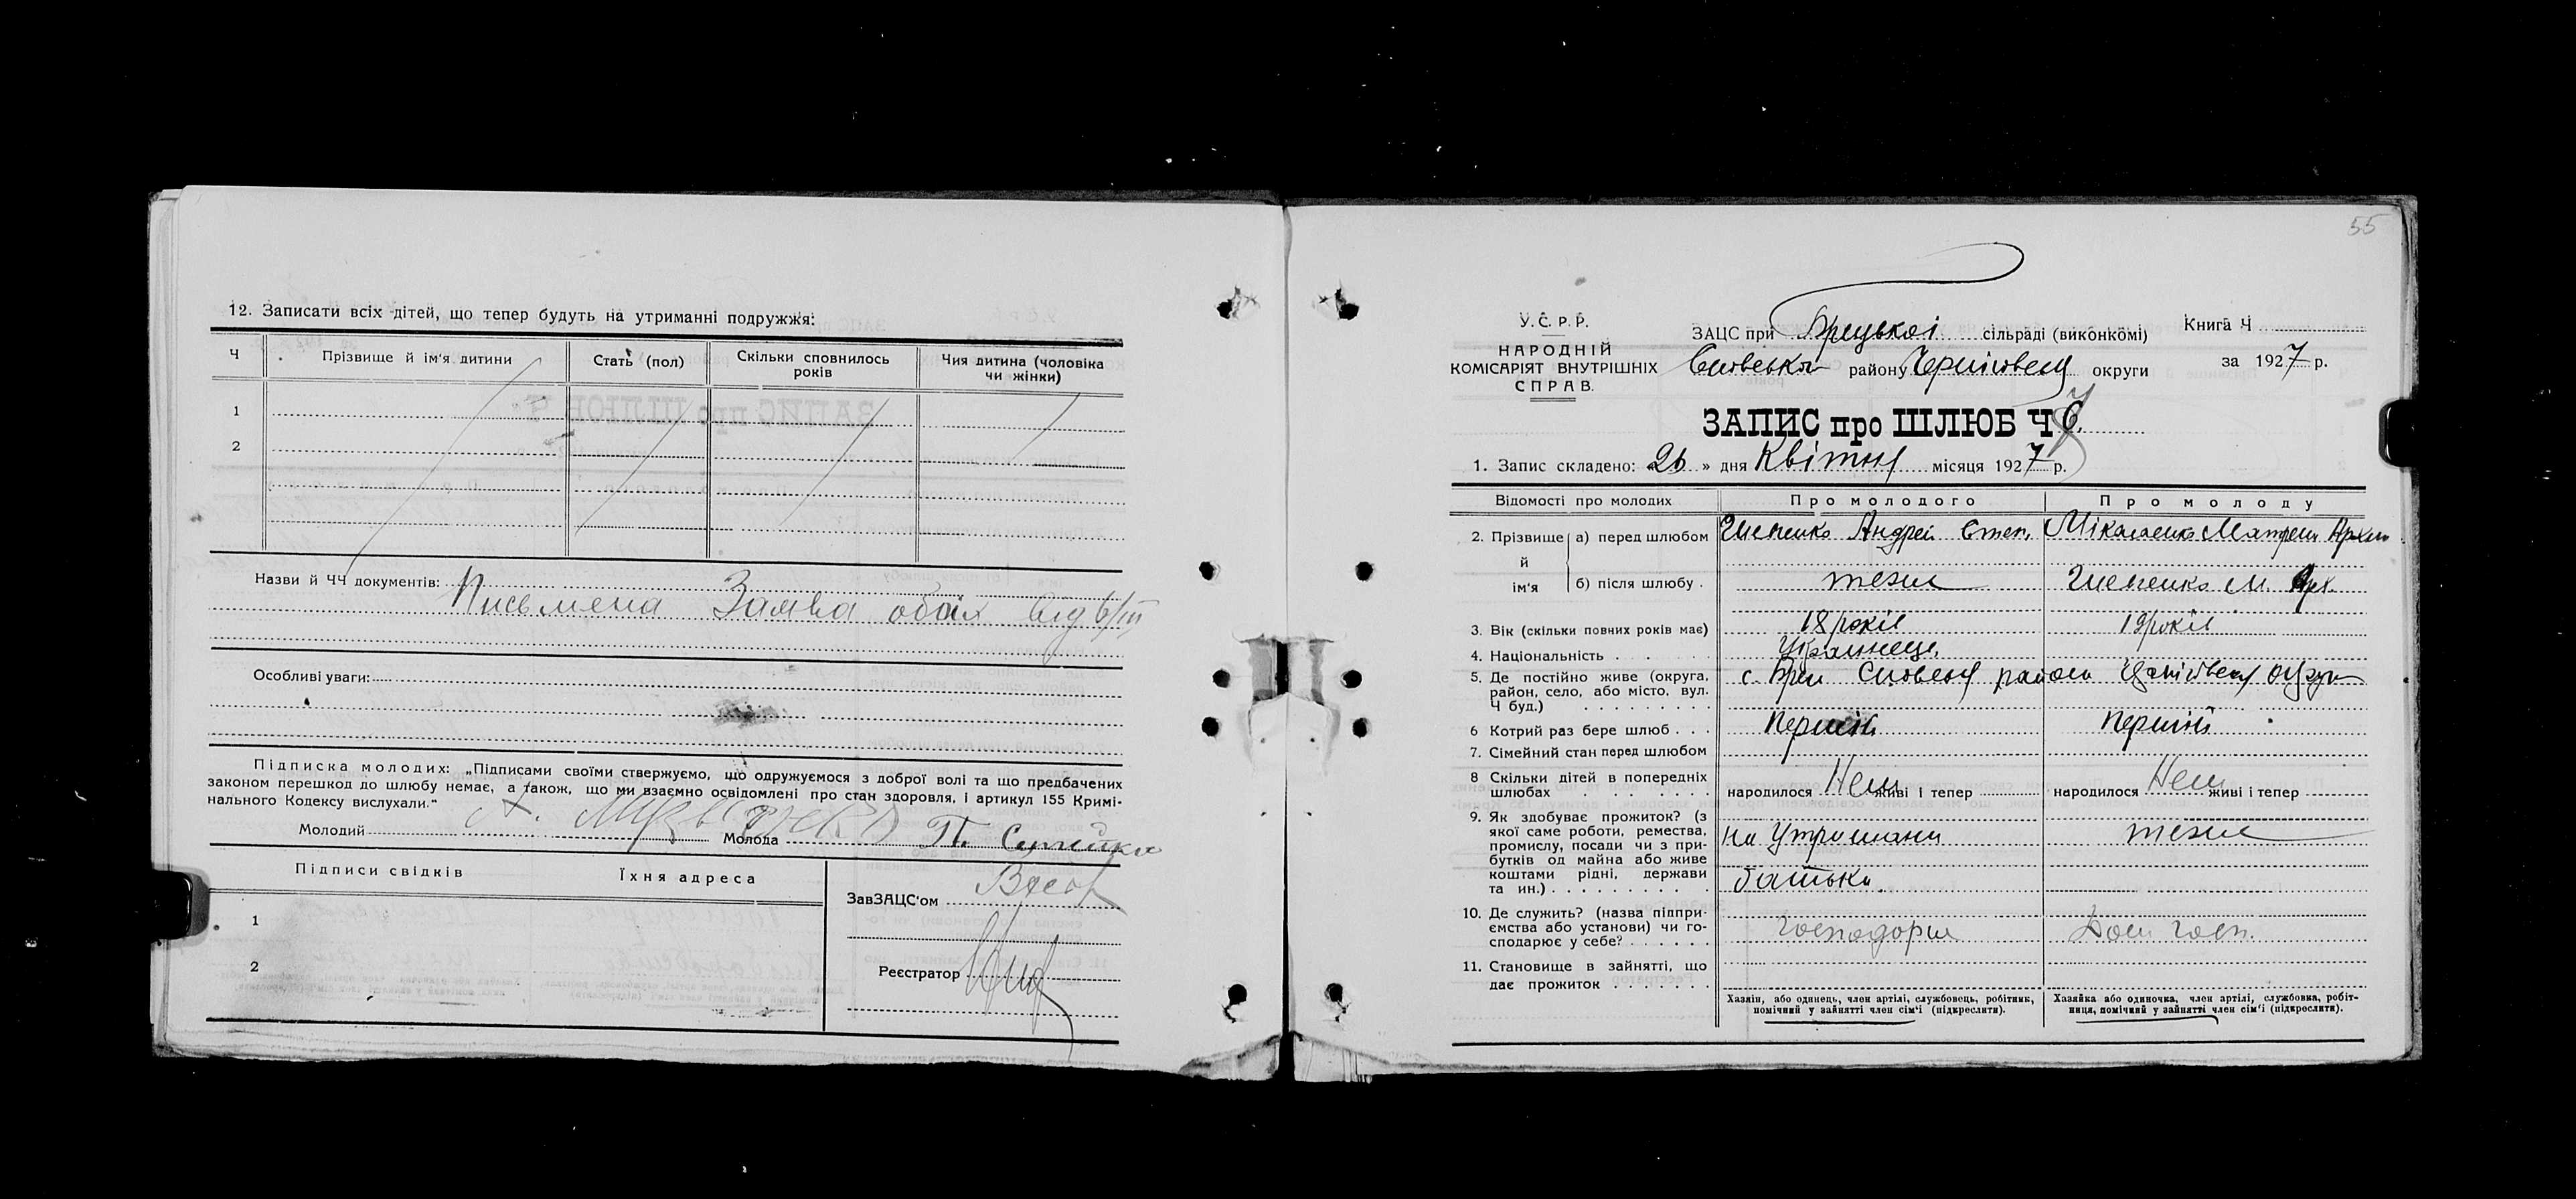 12. Записати всіх дітей, що тепер будуть на утриманні подружжя:
Ч Прізвище й ім'я дитини Стать (пол) Скільки сповнилось років Чия дитина (чоловіка чи жінки)
1
2
Назви й ЧЧ документів: Письмена Заява обоіх від 6/III
Особливі уваги:
Підписка молодих: „Підписами своїми стверджуємо, що одружуємося з доброї волі та що предбачених
законом перешкод до шлюбу немає, а також, що ми взаємно освідомлені про стан здоровля, і артикул 155 Кримі-
нального Кодексу вислухали."
Молодий А. Молода П.
Підписи свідків Їхня адреса
ЗавЗАЦС'ом
1
2
Реєстратор
55
У.С.Р.Р.
НАРОДНІЙ
КОМІСАРІЯТ ВНУТРІШНІХ
СПРАВ.
ЗАЦС при Брецькоі сільраді (виконкомі)
району округи
Книга Ч
за 1927 р.
ЗАПИС про ШЛЮБ Ч 6.
1. Запис складено: «26» дня Квітня місяця 1927 р.
Відомості про молодих Про молодого Про молоду
2. Прізвище й ім'я а) перед шлюбом Андрей Степ.
б) після шлюбу . М. Арх.
3. Вік (скільки повних років має) 18 років 19 років
4. Національність . . Украинець.
5. Де постійно живе (округа, район, село, або місто, вул. Ч буд.) с. Бреч района
6 Котрий раз бере шлюб . . . Перший Перший
7. Сімейний стан перед шлюбом
8 Скільки дітей в попередніх шлюбах народилося Нем живі і тепер народилося Нем живі і тепер
9. Як здобуває прожиток? (з якої саме роботи, ремества, промислу, посади чи з прибутків од майна або живе коштами рідні, держави та ин.) на Утримани
батька.
10. Де служить? (назва підпри-ємства або установи) чи го-сподарює у себе? Дом. госп.
11. Становище в зайнятті, що дає прожиток
Хазяїн, або одинець, член артілі, службовець, робітник, помічний у зайнятті член сім'ї (підкреслити).
Хазяйка або одиночка, член артілі, службовка, робіт-ниця, помічний у зайнятті член сім'ї (підкреслити).